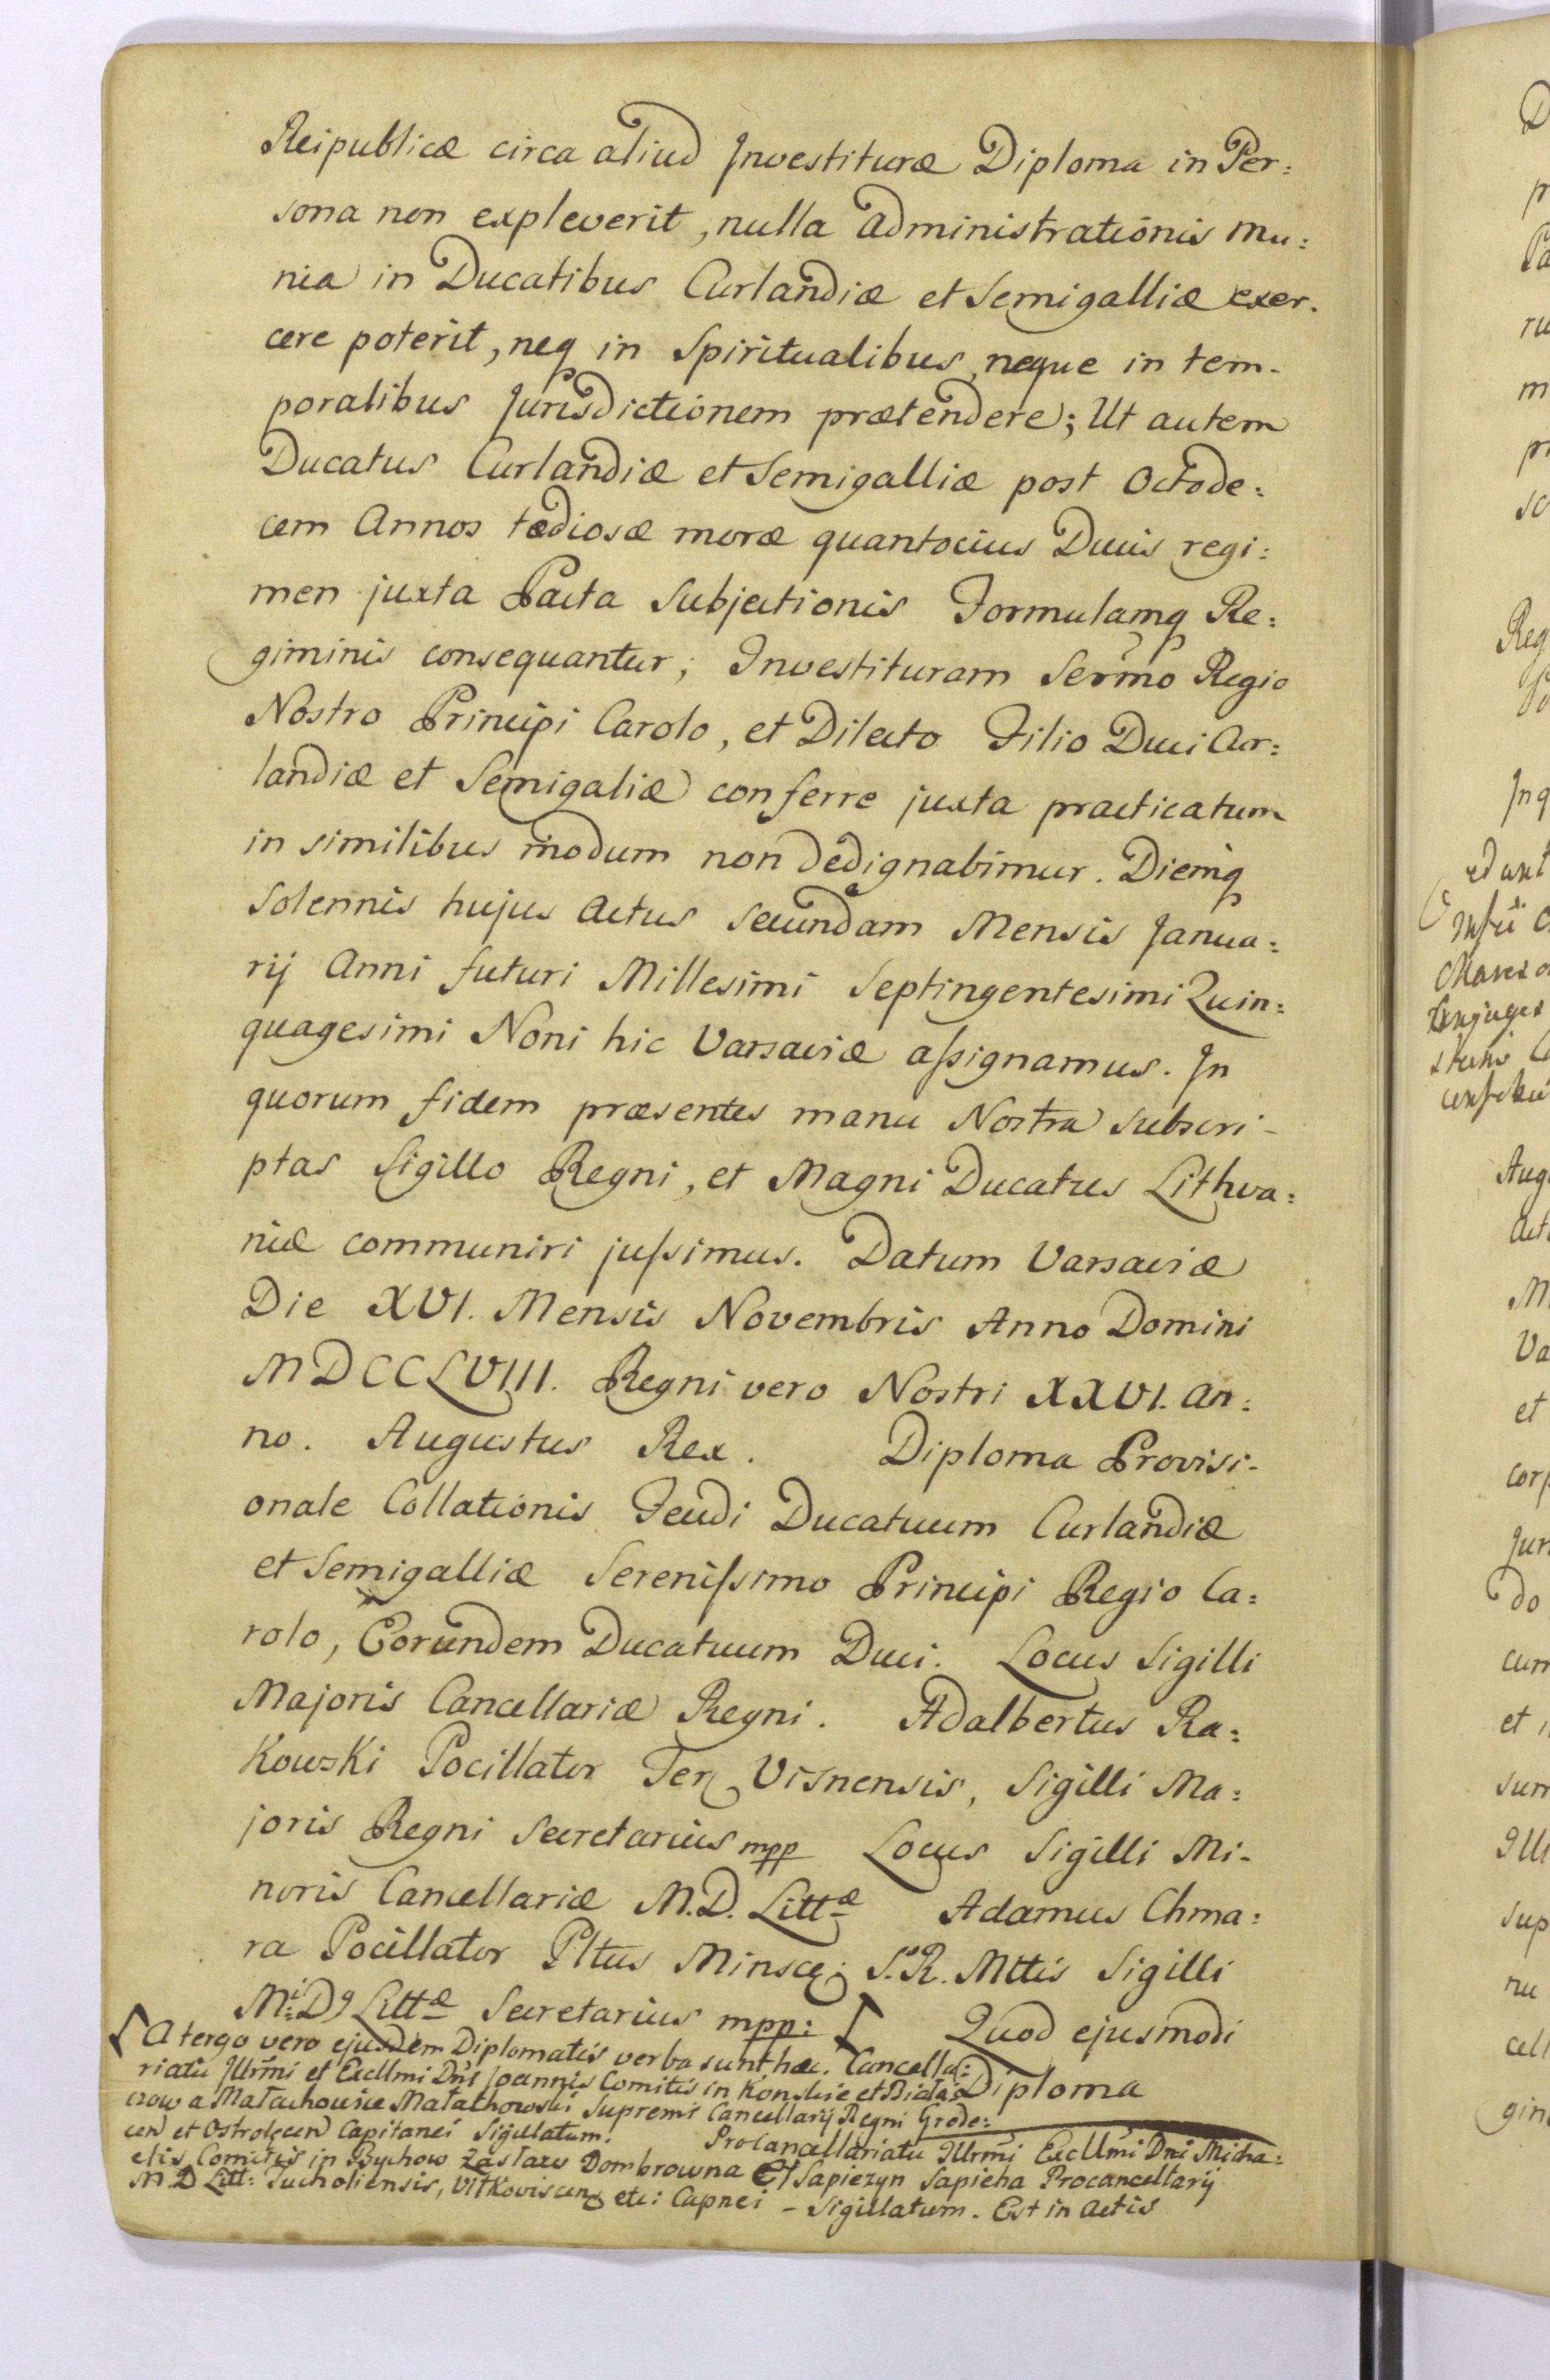 Reipublicæ circa aliud Investituræ Diploma in Per:
sona non expleverit, nulla administrationis mu:
nia in Ducatibus Curlandiæ et Semigalliæ exer.
cere poterit, neq in Spiritualibus, neque in tem-
poralibus Jurisdictionem prætendere; Ut autem
Ducatus Curlandiæ et Semigalliæ post Octode:
cem Annos tædiosæ moræ quantocius Ducis regi:
men juxta Pacta Subjectionis Formulamq Re:
giminis consequantur; Investituram Sermo Regio
Nostro Principi Carolo, et Dilecto Filio Duci Cur:
landiæ et Semigaliæ conferre juxta practicatum
in similibus modum non dedignabimur. Diemq
Solennis hujus Actus secundam Mensis Janua:
rij Anni futuri Millesimi Septingentesimi Quin:
quagesimi Noni hic Varsaviæ assignamus. In
quorum fidem præsentes manu Nostra subscri-
ptas Sigillo Regni, et Magni Ducatus Lithva:
niæ communiri jussimus. Datum Varsaviæ
Die XVI. Mensis Novembris Anno Domini
MDCCLVIII. Regni vero Nostri XXVI. An:
no. Augustus Rex. Diploma Provisi-
onale Collationis Feudi Ducatuum Curlandiæ
et Semigalliæ Serenissimo Principi Regio Ca:
rolo, Eorundem Ducatuum Duci. Locus Sigilli
Majoris Cancellariæ Regni. Adalbertus Ra:
Kowski Pocillator Ter Visnensis, Sigilli Ma:
joris Regni Secretarius mpp Locus Sigilli Mi-
noris Cancellariæ M.D. Littæ Adamus Chma:
ra Pocillator Pltus Minscen S.R. Mttis Sigilli
Mi: D9 Littæ Secretarius mpp: Quod ejusmodi
Diploma
A tergo vero ejusdem Diplomatis verba sunt hæc. Cancella:
riatu Jllrmi et Excllmi Dni Joannis Comitis in Konskie et Biala:
czow a Małachowice Małachowski Supremi Cancellarij Regni Grode:
cen et Ostrolecen Capitanei Sigillatum. Procancellariatu Illrmi Excllmi Dni Micha:
elis Comitis in Bychow Zasław Dombrowna et Sapiezyn Sapieha Procancellarij
M D Litt: Tucholiensis, Vitkoviscen etc: Capnei - Sigillatum. Est in Actis